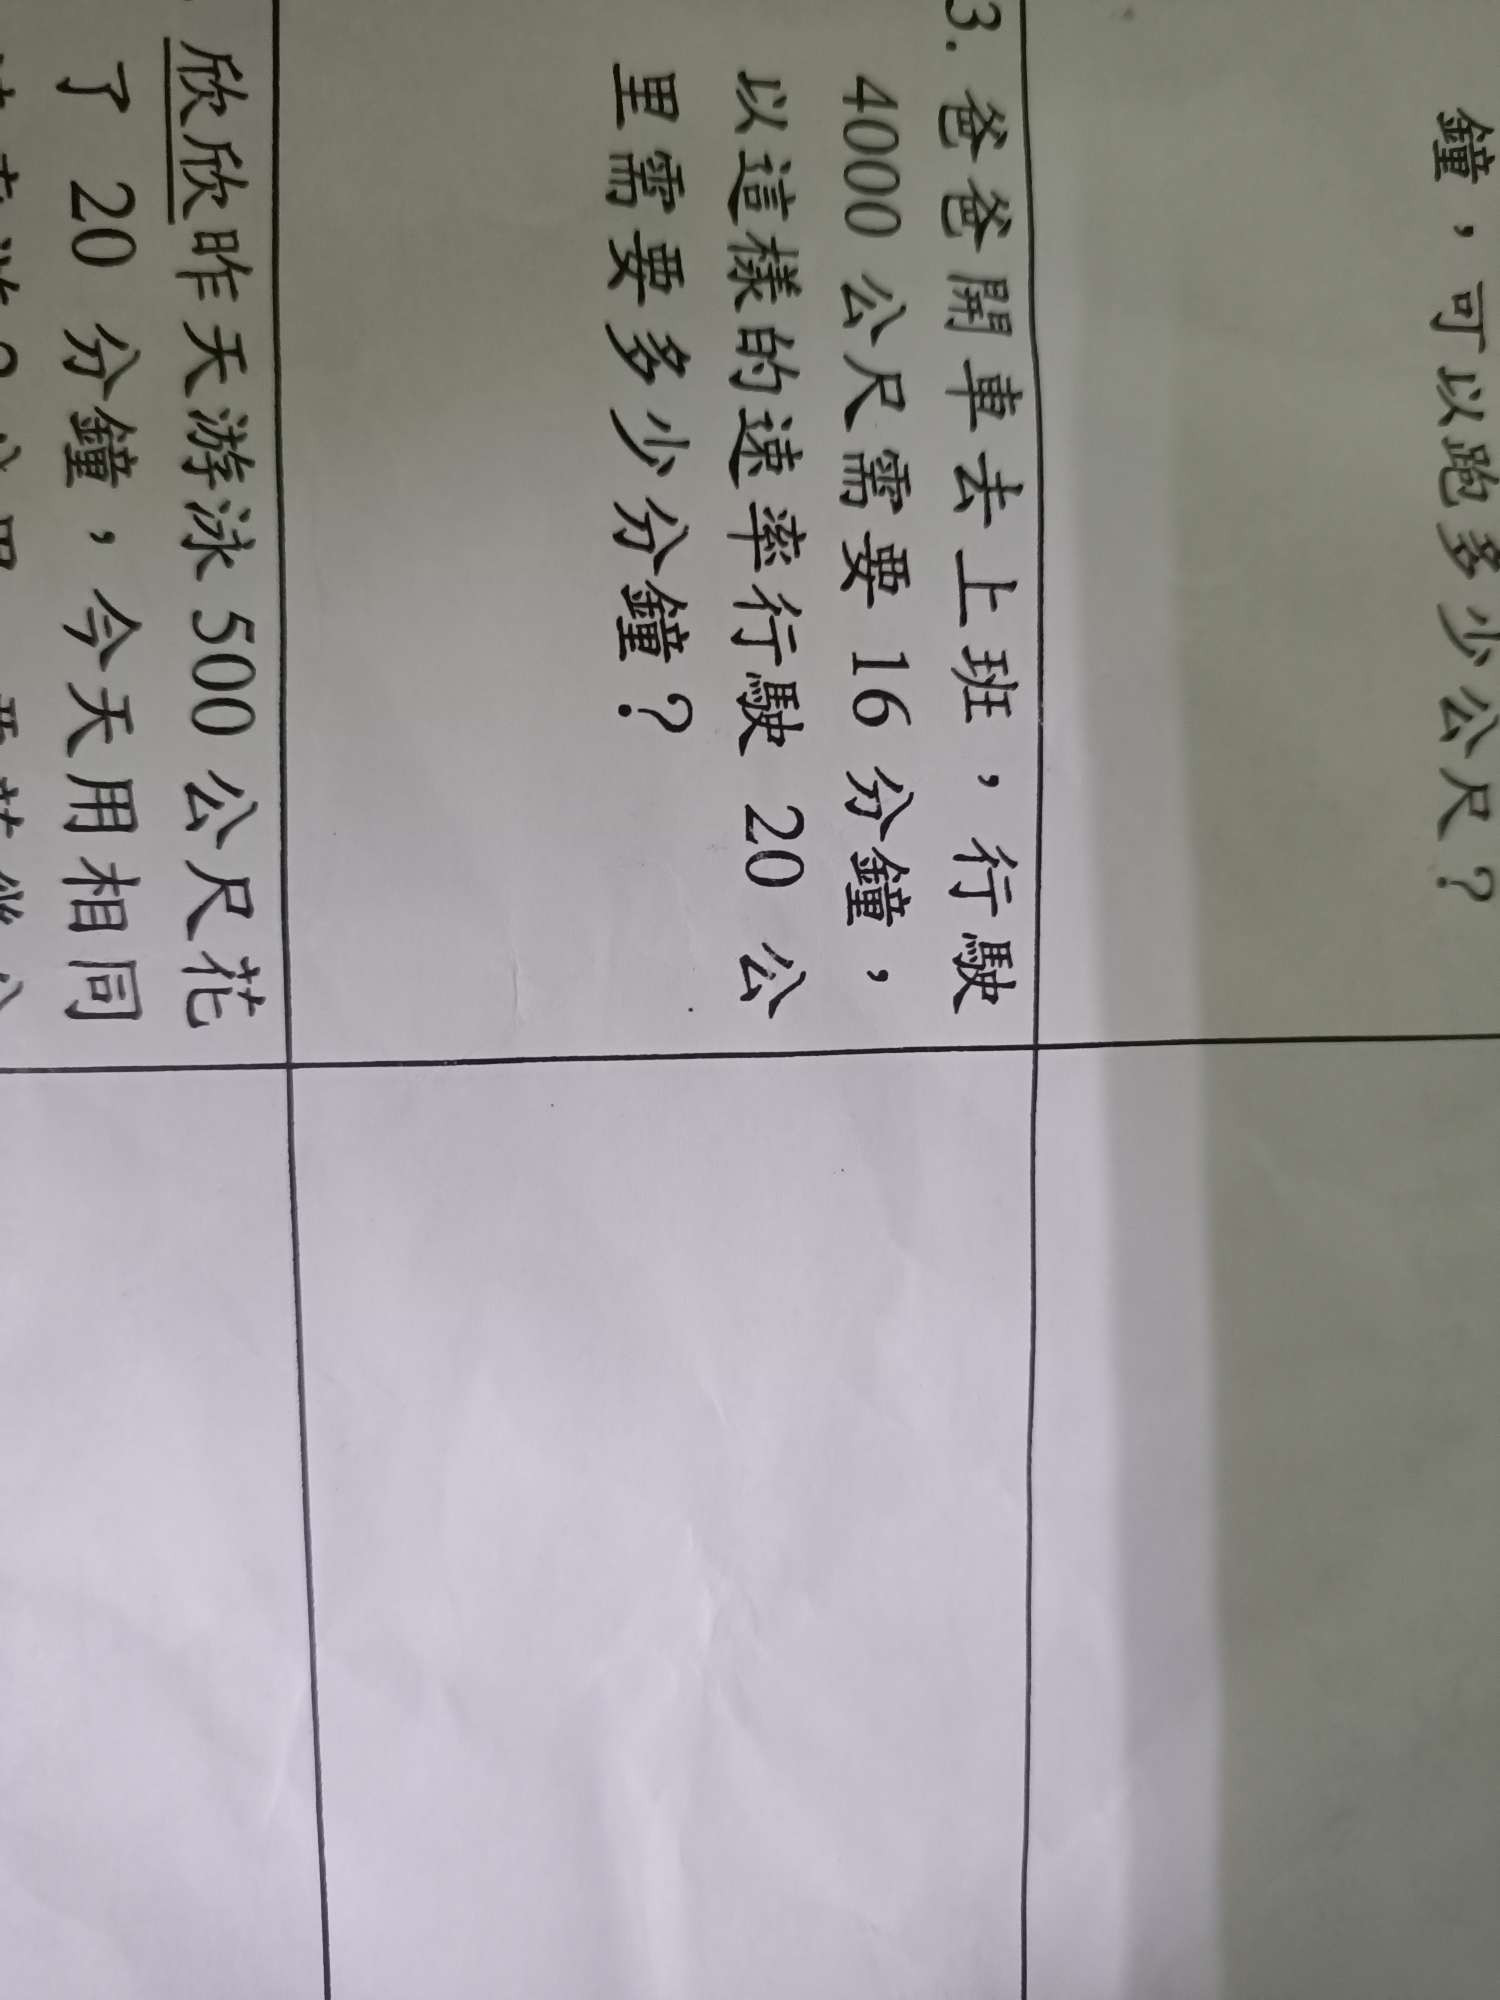 鐘，可以跑多少公尺？
3. 爸爸開車去上班，行駛
4000 公尺需要 16 分鐘，
以這樣的速率行駛 20 公
里需要多少分鐘？
欣欣昨天游泳 500 公尺花
了 20 分鐘，今天用相同